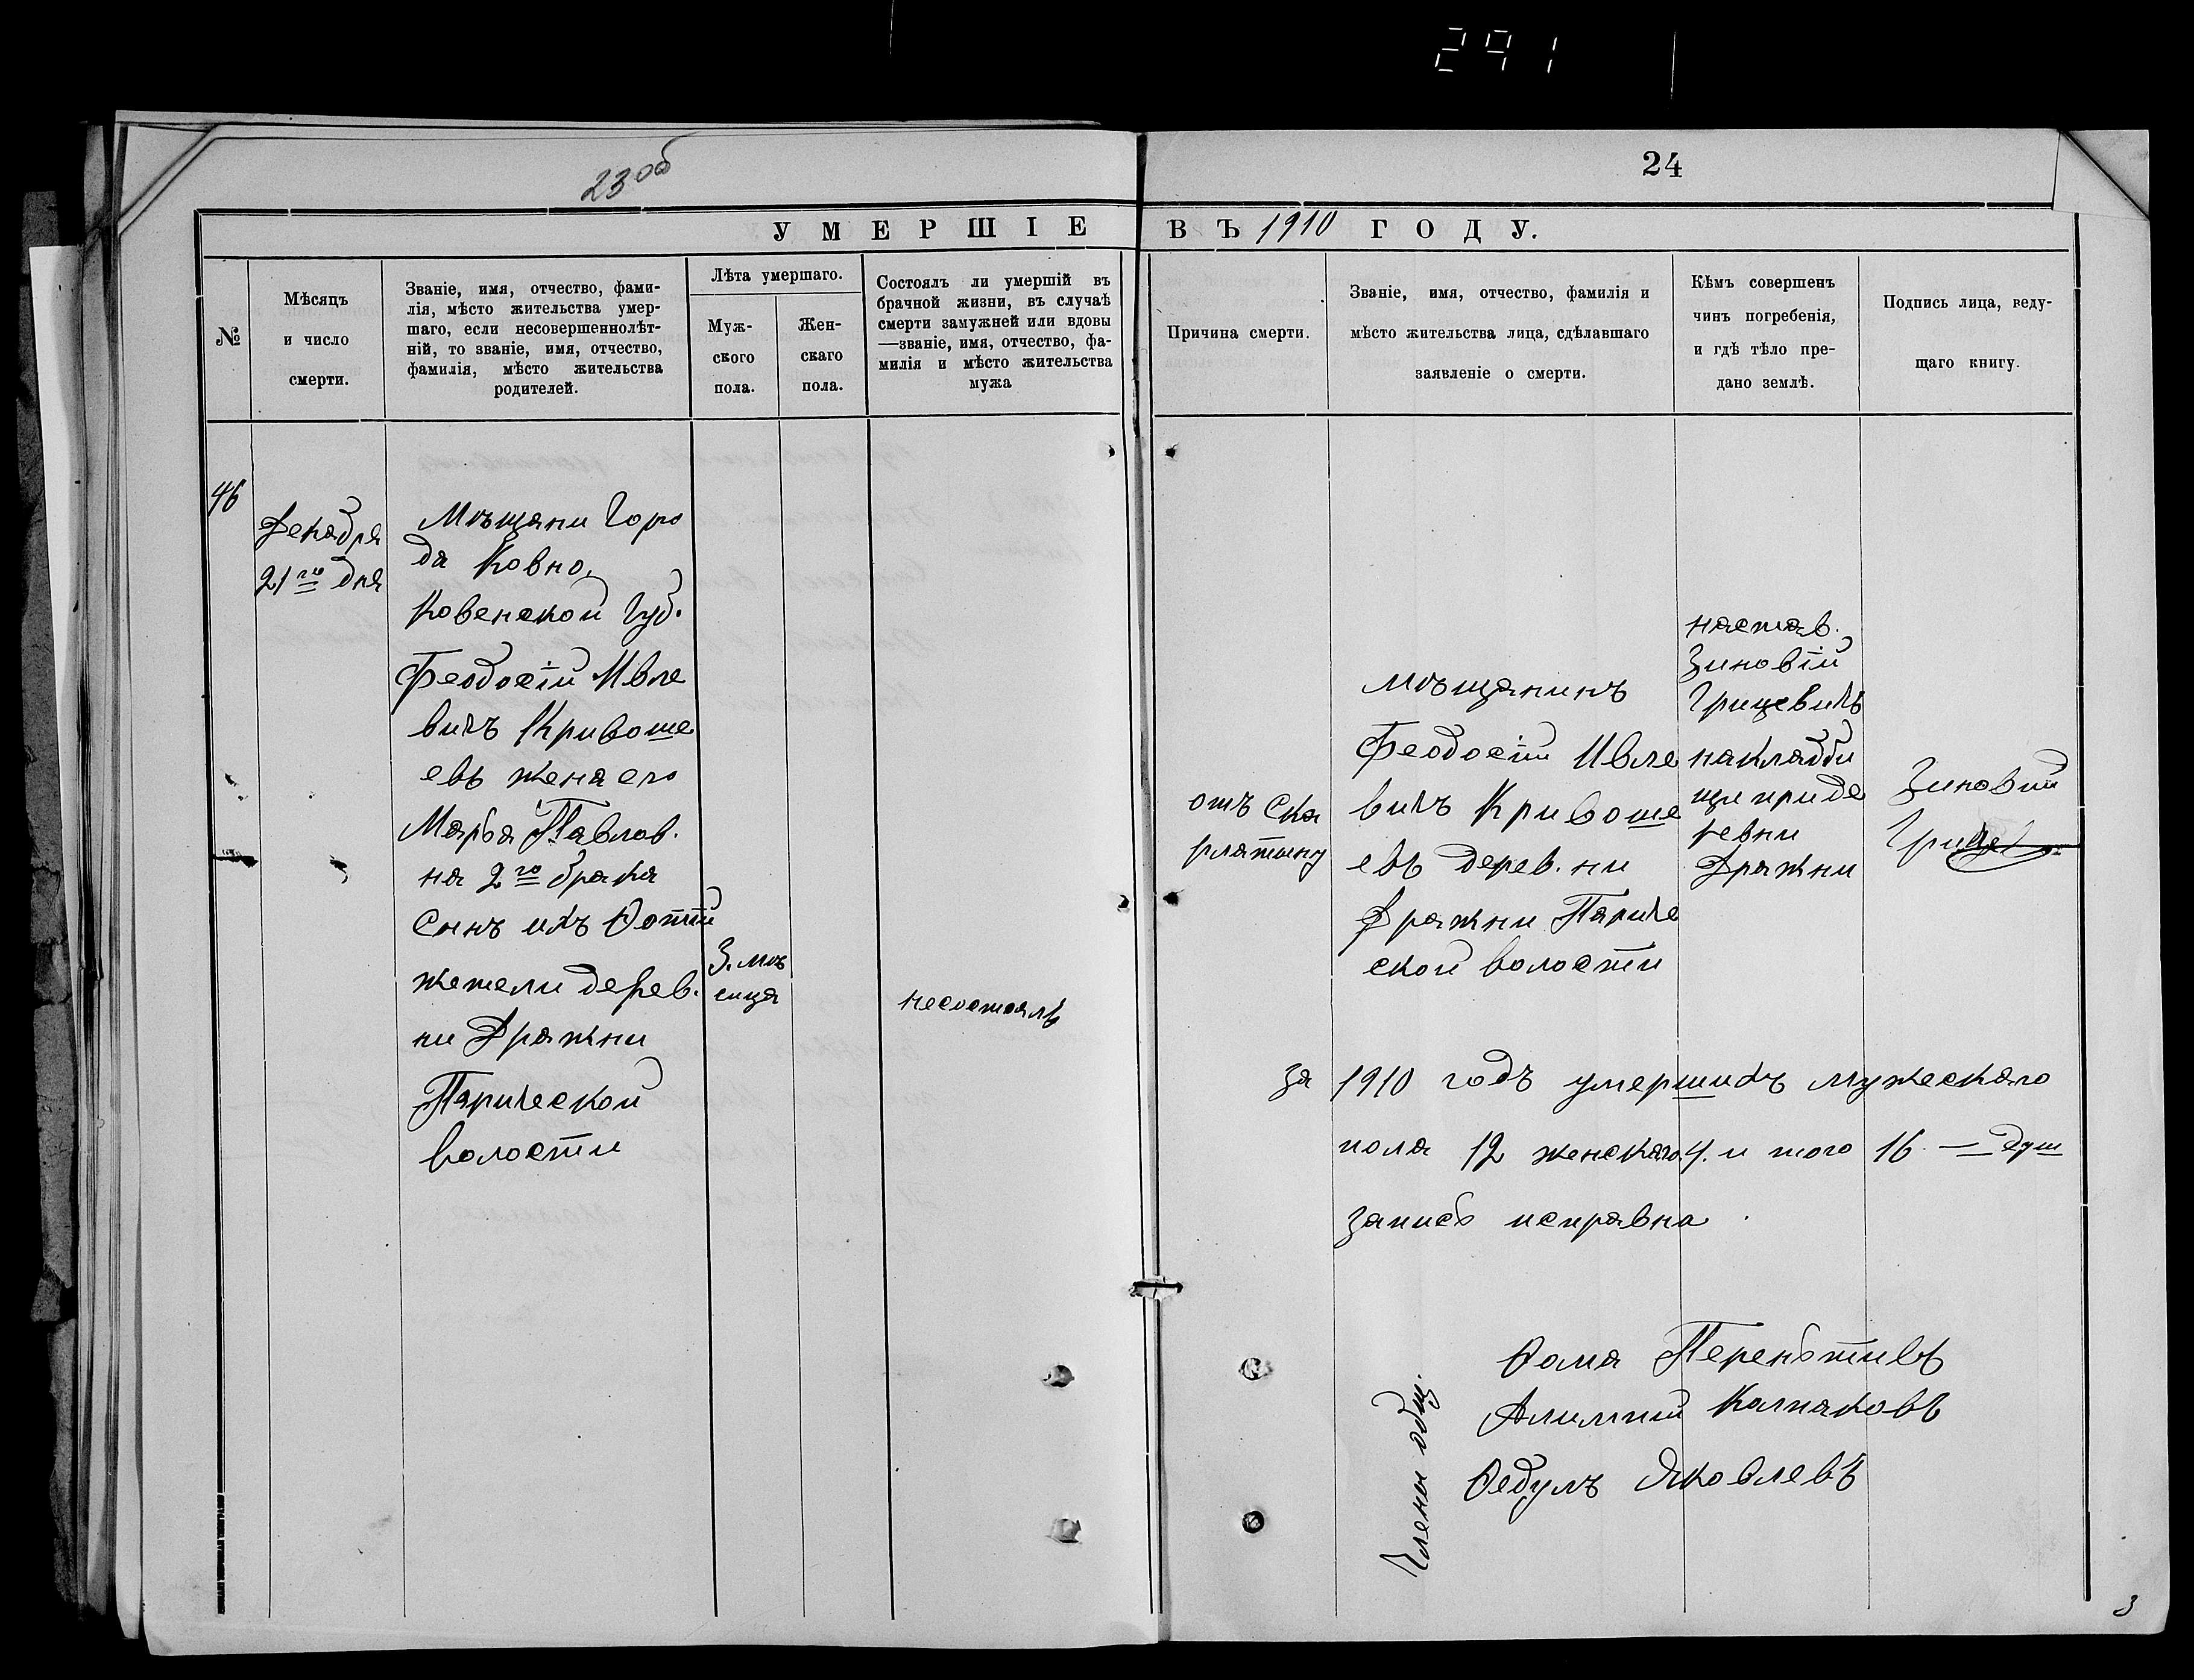 291
23 об
24
УМЕРШІЕ ВЪ 1910 ГОДУ.
№
Мѣсяцъ
и число
смерти.
Званіе, имя, отчество, фами-
лія, мѣсто жительства умер-
шаго, если несовершеннолѣт-
ній, то званіе, имя, отчество,
фамилія, мѣсто жительства
родителей.
Лѣта умершаго.
Муж-
ского
пола.
Жен-
скаго
пола.
Состоялъ ли умершій въ
брачной жизни, въ случаѣ
смерти замужней или вдовы
—званіе, имя, отчество, фа-
милія и мѣсто жительства
мужа
Причина смерти.
Званіе, имя, отчество, фамилія и
мѣсто жительства лица, сдѣлавшаго
заявленіе о смерти.
Кѣмъ совершенъ
чинъ погребенія,
и гдѣ тѣло пре-
дано землѣ.
Подпись лица, веду-
щаго книгу.
46
Декабря
21го дня
Мѣщани Горо
да Ковно,
Ковенской Губ.
Феодосій Ивле
вичъ Кривоше
евъ жена его
Марья Павлов.
на 2го брака
Сынъ ихъ
жетели дерев.
ни Дражни
Паричской
волости
3. мѣ
сица
несостоялъ
отъ Ска
рлатыну
мѣщанинъ
Феодосій Ивле
вичъ Кривоше
евъ дерев.ни
Дражни Париче
ской волости
настав.
Зиновій
Грицевичъ
накладби
щи приде
ревни
Дражни
Зиновий
Грицев
за 1910 годъ умершихъ мужескаго
пола 12 женскаго 4. и того 16 — душ
запись исправна.
Члены общ.
Ѳома Перентьевъ
Алимпий Калпаковъ
Ѳедулъ Яковлевъ
3